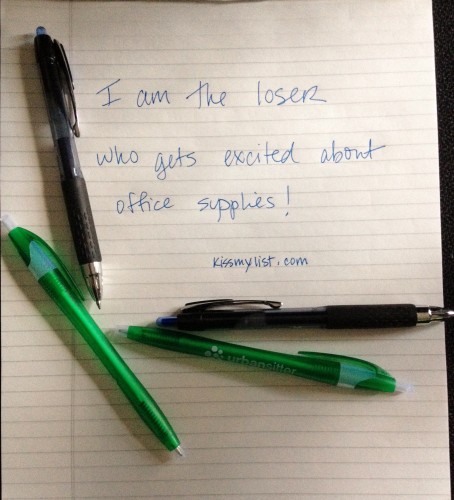 I am the loser
who gets excited about
office supplies!
kissmylist.com
urbansitter